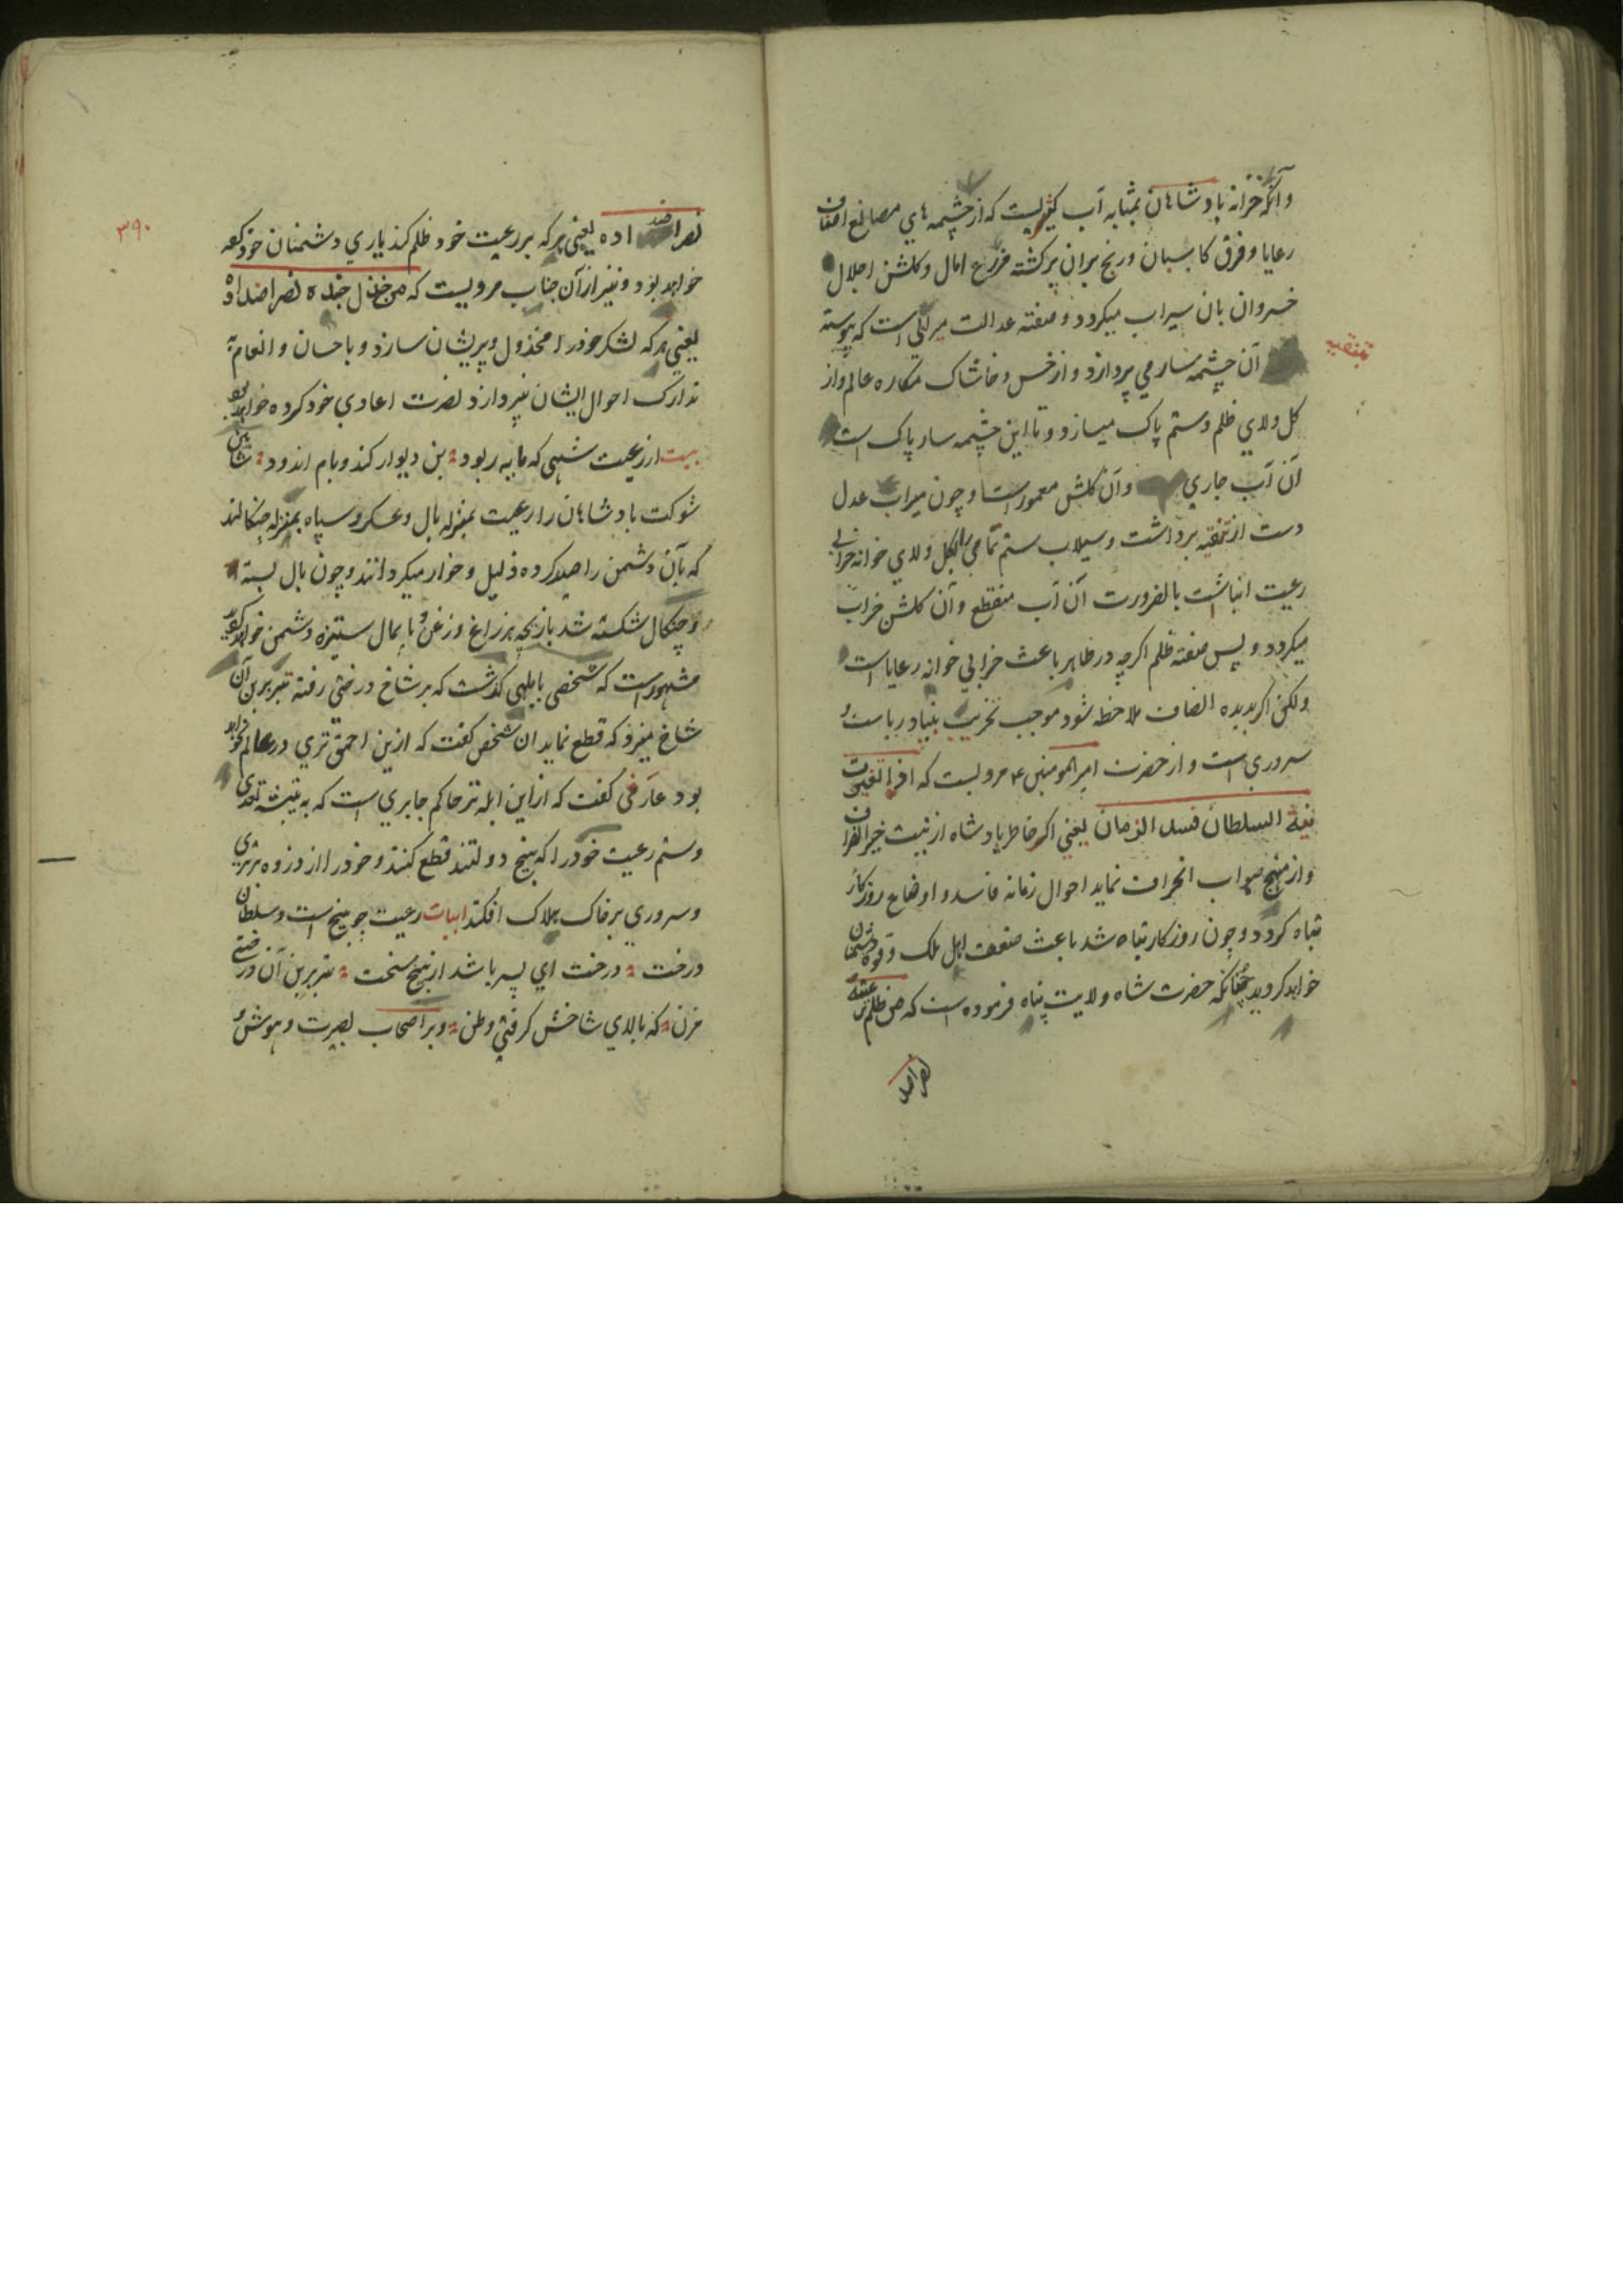 وآنکه خزانه پادشاهان بمثابه آب کثیریست که از چشمه های مصانع اصناف
رعایا وفرق کاسبان ورنج بران برکشته مزرع امال وکلشن اجلال
خسروان بان سیراب میکردد وصفته عدالت میرابی است که پیوسته
بتنقیه
آن چشمه سار می پردازد واز خس وخاشاک مکاره عالم واز
کل ولای ظلم وستم پاک میسازد وتا این چشمه سار پاک است
آن آب جاری وآن کلشن معمور است وچون میراب عدل
دست از تنقیه برداشت وسیلاب ستم تمامی را بکل ولای خوانه خرابی
رعیت انباشت بالضرورت آن آب منقطع وآن کلشن خراب
میکردد وپس صفته ظلم اکرچه در ظاهر باعث خرابی خوانه رعایا است
ولکن اکر بدیده انصاف ملاحظه شود موجب تخریب بنیاد ریاست و
سروری است واز حضرت امیرالمومنین ع مرویست که اذا تغیرت
نیة السلطان فسد الزمان یعنی اکر خاطر پادشاه از نیت خیر انحراف
واز منهج صواب انحراف نماید احوال زمانه فاسد واوضاع روزکار
تباه کردد وچون روزکار تباه شد باعث ضعف اهل ملک وقوه دشمنان
خواهد کردید چنانکه حضرت شاه ولایت پناه فرموده است که من ظلم رعیته
نصر اضد
۳۹۰
نصر اضداده یعنی هرکه بر رعیت خود ظلم کند یاری دشمنان خود کرده
خواهد بود ونیز از آن جناب مرویست که من خذل جنده نصر اضداده
یعنی هرکه لشکر خود را مخذول وپریشان سازد وباحسان وانعام به
تدارک احوال ایشان نپردازد نصرت اعادی خود کرده خواهد بود
بیت از رعیت شهی که مایه ربود بن دیوار کند وبام اندود شاهین
شوکت پادشاهان را رعیت بمنزله بال وعسکر وسپاه بمنزله چنکالند
که بآن دشمن را صید کرده ذلیل وخوار میکردانند وچون بال بسته
وچنکال شکسته شد بازیچه هر زاغ وزغن وپایمال ستیزه دشمن خواهد کردید
مشهور است که شخصی بابلهی کذشت که بر شاخ درختی رفته تبر بر بن آن
شاخ میزد که قطع نماید ان شخص کفت که ازین احمق تری در عالم نخواهد
بود عارفی کفت که از این ابله تر حاکم جابری است که به تیشه تعدی
وستم رعیت خود را که بیخ دولتند قطع کنند وخود را از ذروه برتری
وسروری بر خاک هلاک افکند ابیات رعیت چو بیخ است وسلطان
درخت درخت ای پسر باشد از بیخ سخت تبر بر بن آن درختی
مزن که بالای شاخش کرفتی وطن وبر اصحاب بصیرت وهوش و